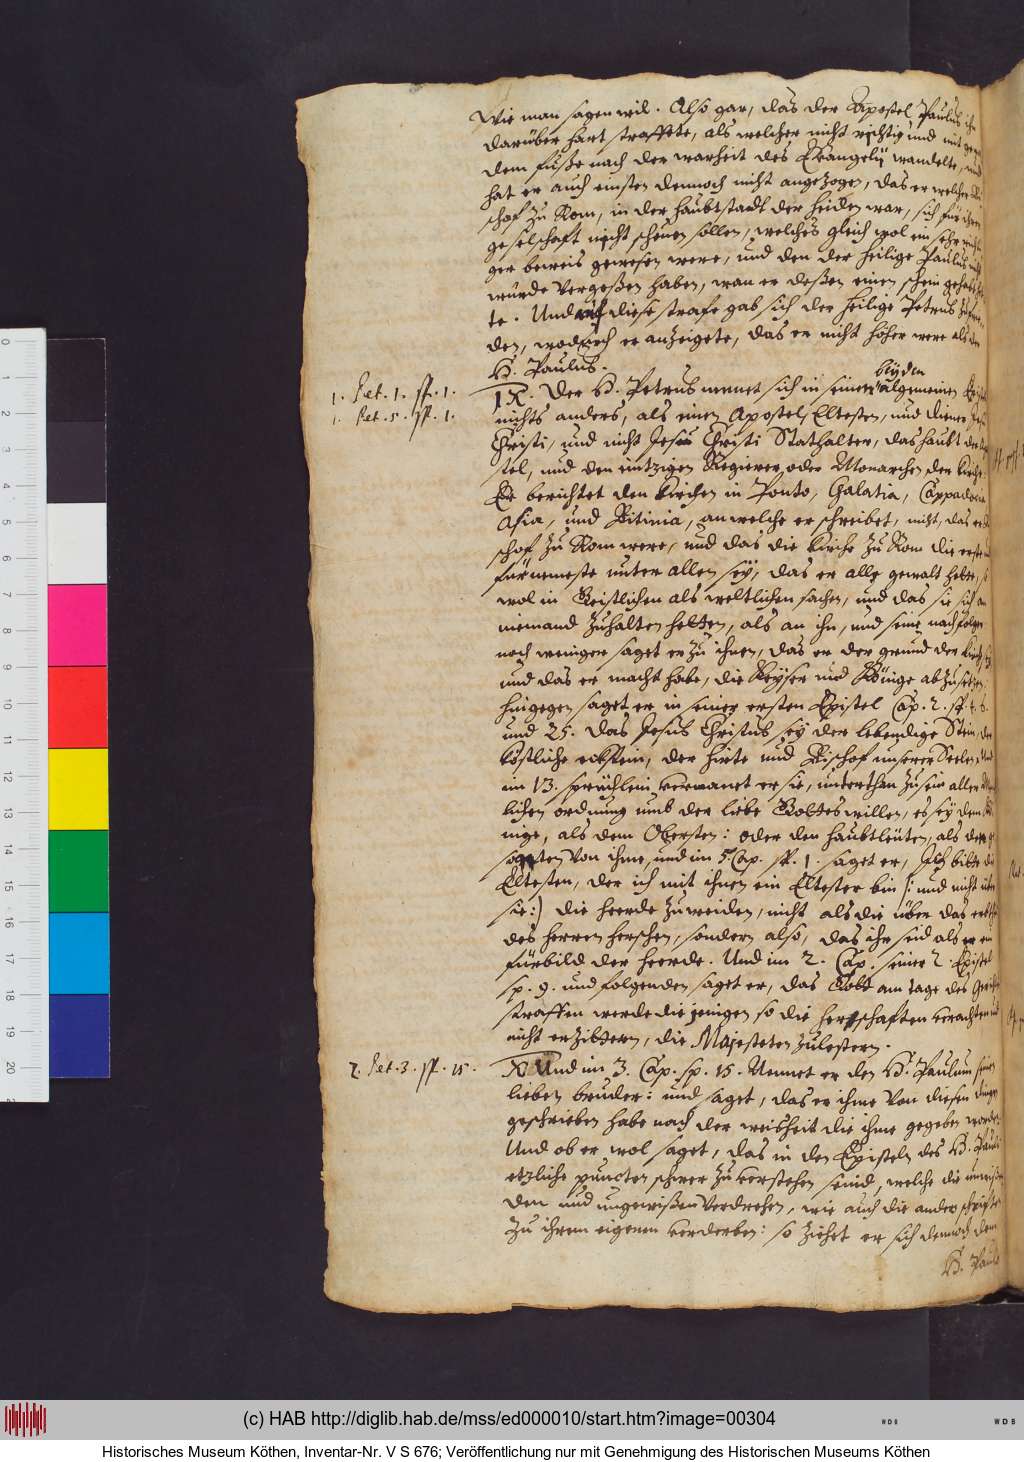 Wie man sagen wil. Also gar, das der Apostel Paulus ihn
darüber hart straffete, als welcher nicht richtig und mit
dem füße nach der warheit des Evangelij wandelte, und
hat er auch einsten dennoch nicht angezogen, das er welcher Bi
schof zu Rom, in der haubtstadt der heiden war, sich für ihrer
geselschaft nicht scheuen sollen, welches gleich wol ein sehr
ger beweis gewesen were, und den der heilige Paulus nicht
würde vergeßen haben, wan er deßen einen schein gehabt het
te. Und auf diese strafe gab sich der heilige Petrus
den, wodurch er anzeigete, das er nicht höher were als der
H. Paulus.
1. Pet. 1. ℣. 1.
1. Pet. 5. ℣. 1.
IX. Der H. Petrus nennet sich in seinen beyden algemeinen
nichts anders, als einen Apostel, Eltesten, und diener Jesu
Christi, und nicht Jesu Christi Stathalter, das haubt der Apo
stel, und den eintzigen Regierer oder Monarchen der kirche.
Er berichtet den kirchen in Ponto, Galatia, Cappadocia
Asia, und Bitinia, an welche er schreibet, nicht, das er Bi
schof zu Rom were, und das die kirche zu Rom die erste und
fürnemeste unter allen sey, das er alle gewalt hette, so
wol in Geistlichen als weltlichen sachen, und das sie sich an
niemand zuhalten hetten, als an ihn, und seine nachfolger
noch weniger saget er zu ihnen, das er der grund der kirchen sey
und das er macht habe, die Keyser und Könige abzusetzen.
hingegen saget er in seiner ersten Epistel Cap. 2. ℣. 4. 6.
und 25. das Jesus Christus sey der lebendige Stein, der
köstliche eckstein, der hirte und Bischof unserer Seelen. Und
im 13. sprüchlein vermanet er sie, unterthan zu sein aller
lichen ordnung umb der liebe Gottes willen, es sey dem Kö
nige, als dem Obersten: oder den haubtleüten, als den ge
santen von ihme, und im 5. Cap. ℣. 1. saget er, Ich bitte die
Eltesten, der ich mit ihnen ein Eltester bin (: und nicht über
sie:) die heerde zu weiden, nicht als die über das erbtheil
des herren herschen, sondern also, das ihr seid als ein
fürbild der heerde. Und im 2. Cap. seiner 2. Epistel
sp. 9. und folgenden saget er, das Gott am tage des Gerichts
straffen werde die jenigen so die herrschaften verachten und
nicht erzittern, die Majesteten zulestern.
2. Pet. 3. ℣. 15.
X. Und im 3. Cap. sp. 15. Nennet er den H. Paulum seinen
lieben bruder: und saget, das er ihme von diesen dingen
geschrieben habe nach der weisheit die ihme gegeben worden.
Und ob er wol saget, das in den Episteln des H. Pauli
etzliche puncten schwer zu verstehen seind, welche die unwißen
den und ungewißen verdrehen, wie auch die ander schriften
zu ihrem eigenen verderben: so ziehet er sich dennoch dem
H. Paulo
(c) HAB http://diglib.hab.de/mss/ed000010/start.htm?image=00304
Historisches Museum Köthen, Inventar-Nr. V S 676; Veröffentlichung nur mit Genehmigung des Historischen Museums Köthen